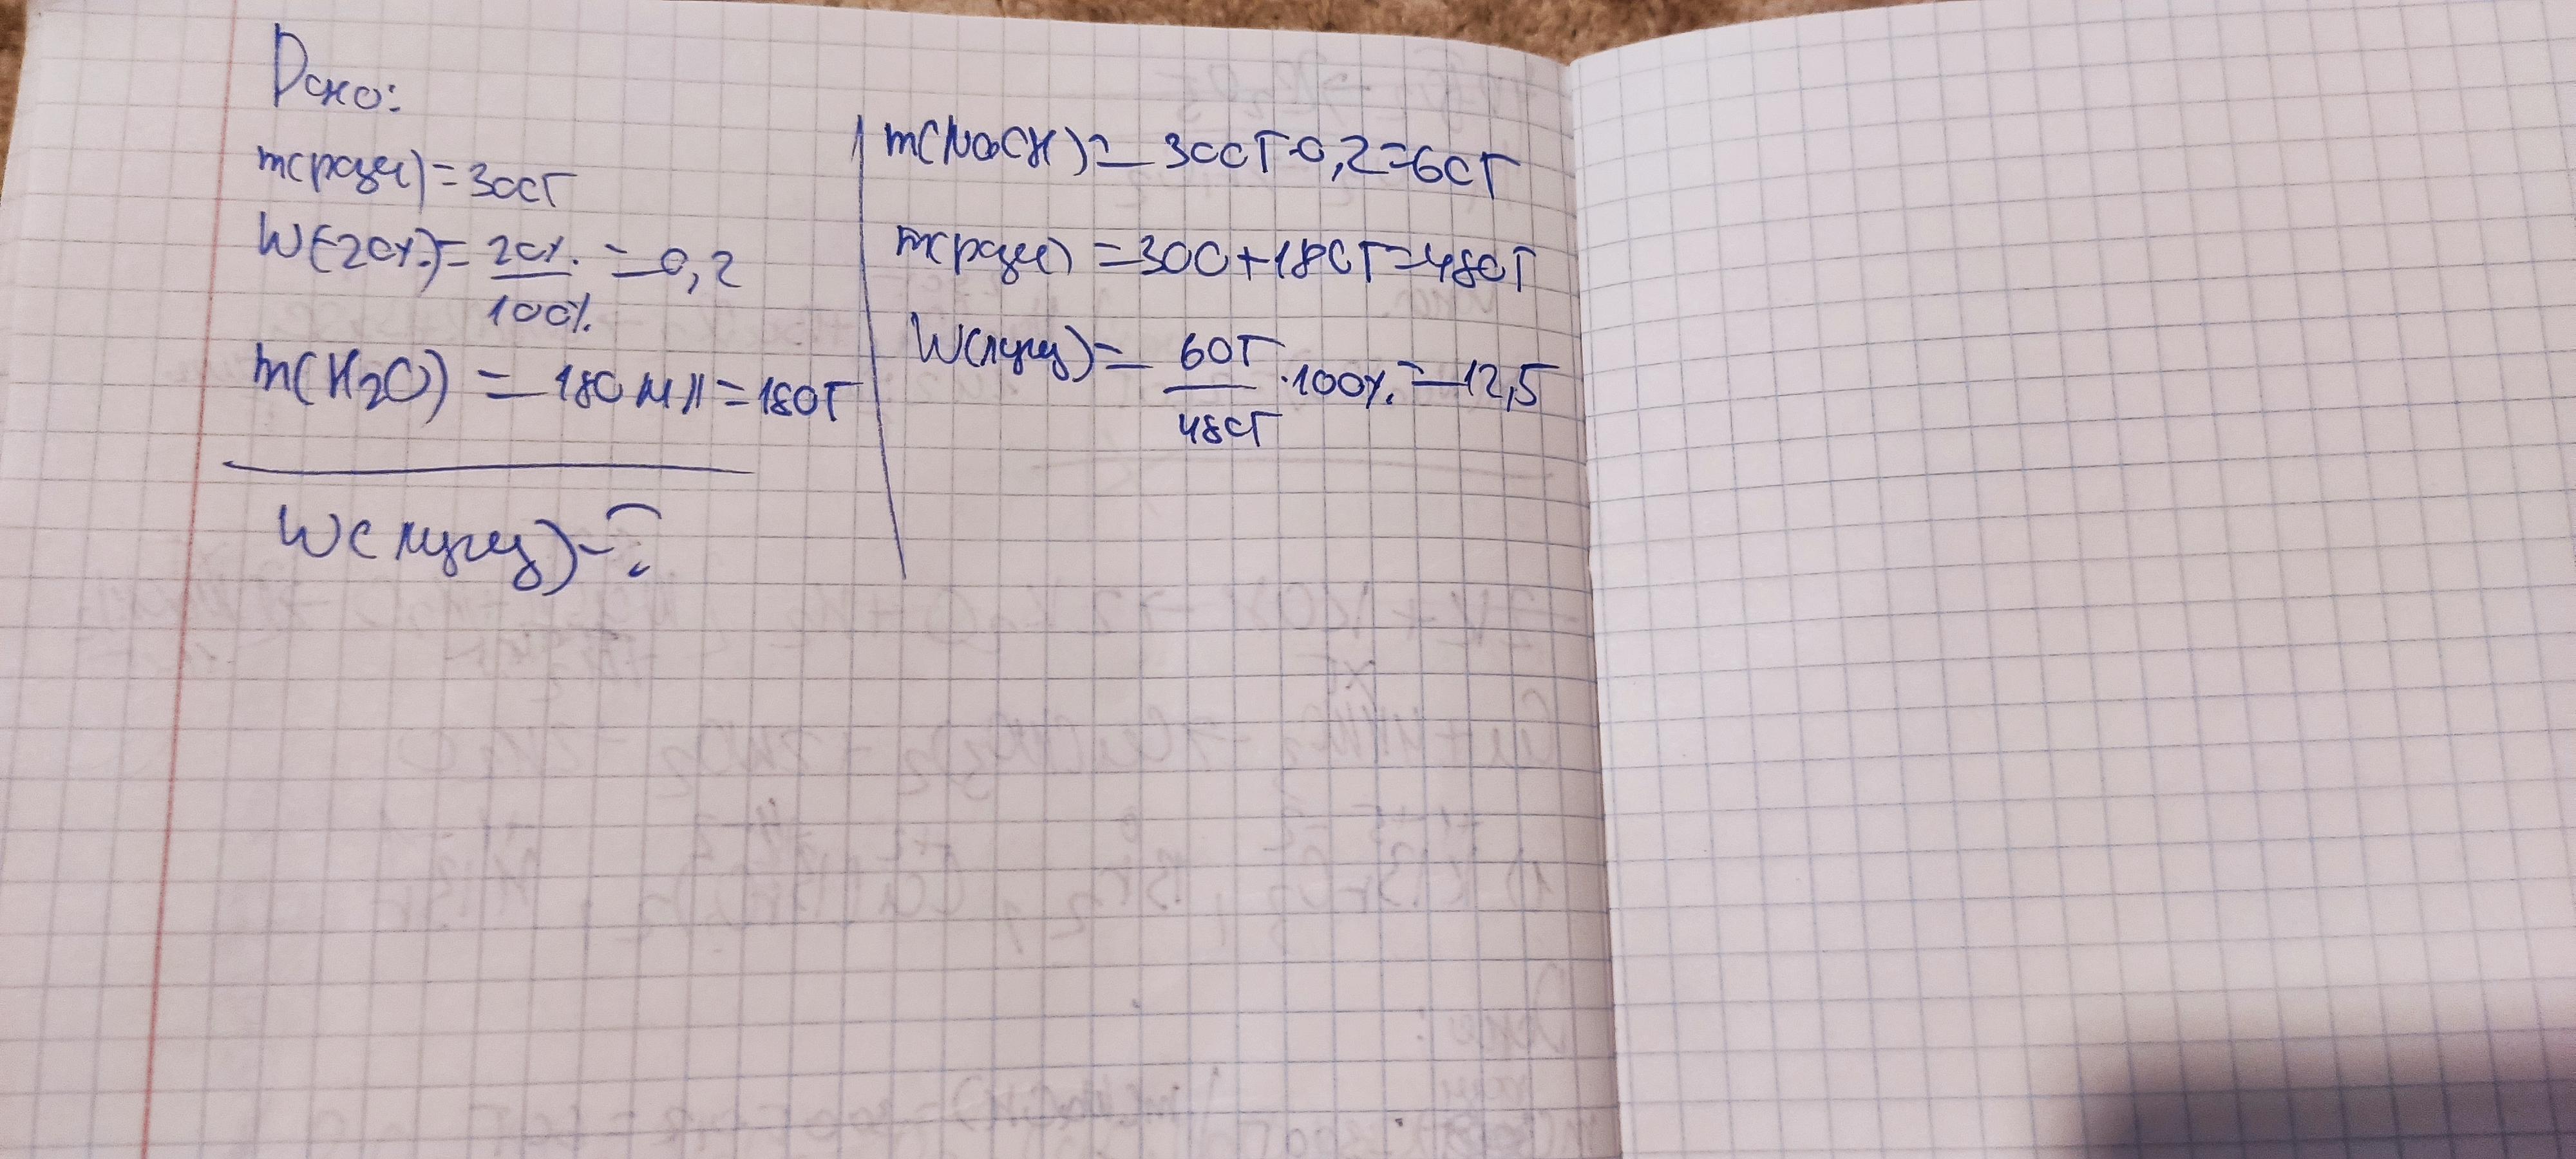 Дано:
m(розч) = 300г
W(20%) = 20% / 100% = 0,2
m(H2O) = 180мл = 180г
W(лугу) - ?
m(NaOH) = 300г·0,2 = 60г
m(розч) = 300 + 180г = 480г
W(лугу) = 60г / 480г · 100% = 12,5